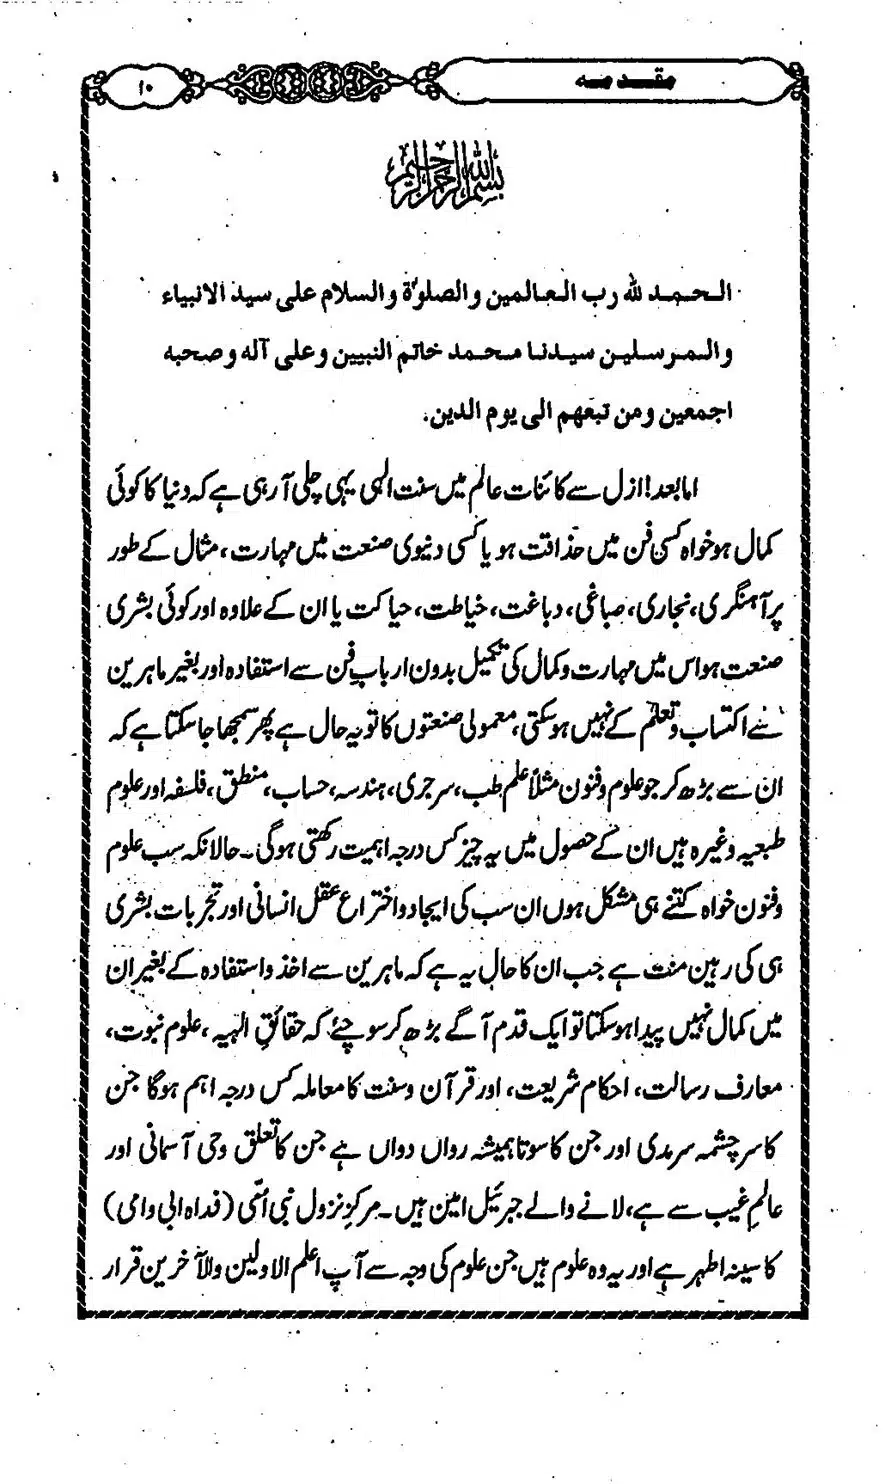 مقدمہ
۱۰
بسم اللہ الرحمن الرحیم
الحمد للہ رب العالمین والصلوٰۃ والسلام علی سید الانبیاء
والمرسلین سیدنا محمد خاتم النبیین وعلی آلہ وصحبہ
اجمعین ومن تبعهم الی یوم الدین.
امابعد! ازل سے کائنات عالم میں سنت الٰہی یہی چلی آرہی ہے کہ دنیا کا کوئی
کمال ہو خواہ کسی فن میں حذاقت ہو یا کسی دنیوی صنعت میں مہارت، مثال کے طور
پر آہنگری، نجاری، صباغی، دباغت، خیاطت، حیاکت یا ان کے علاوہ اور کوئی بشری
صنعت ہو اس میں مہارت وکمال کی تکمیل بدون اربابِ فن سے استفادہ اور بغیر ماہرین
سے اکتساب وتعلّم کے نہیں ہوسکتی، معمولی صنعتوں کا تو یہ حال ہے پھر سمجھا جاسکتا ہے کہ
ان سے بڑھ کر جو علوم وفنون مثلاً علم طب، سرجری، ہندسہ، حساب، منطق، فلسفہ اور علوم
طبعیہ وغیرہ ہیں ان کے حصول میں یہ چیز کس درجہ اہمیت رکھتی ہوگی۔ حالانکہ سب علوم
وفنون خواہ کتنے ہی مشکل ہوں ان سب کی ایجاد واختراع عقل انسانی اور تجربات بشری
ہی کی رہین منت ہے جب ان کا حال یہ ہے کہ ماہرین سے اخذ واستفادہ کے بغیر ان
میں کمال نہیں پیدا ہوسکتا تو ایک قدم آگے بڑھ کر سوچئے کہ حقائقِ الٰہیہ، علوم نبوت،
معارف رسالت، احکام شریعت، اور قرآن وسنت کا معاملہ کس درجہ اہم ہوگا جن
کا سرچشمہ سرمدی اور جن کا سوتا ہمیشہ رواں دواں ہے جن کا تعلق وحی آسمانی اور
عالمِ غیب سے ہے، لانے والے جبرئیل امین ہیں۔ مرکزِ نزول نبی اُمّی (فداہ ابی وامی)
کا سینہ اطہر ہے اور یہ وہ علوم ہیں جن علوم کی وجہ سے آپ اعلم الاولین والآخرین قرار